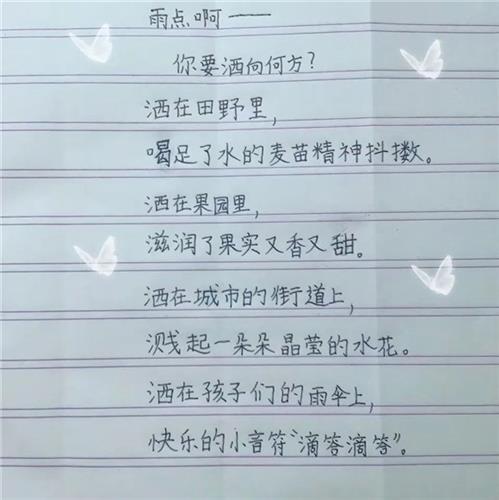 雨点啊——
你要洒向何方？
洒在田野里，
喝足了水的麦苗精神抖擞。
洒在果园里，
滋润了果实又香又甜。
洒在城市的街道上，
溅起一朵朵晶莹的水花。
洒在孩子们的雨伞上，
快乐的小音符“滴答滴答”。